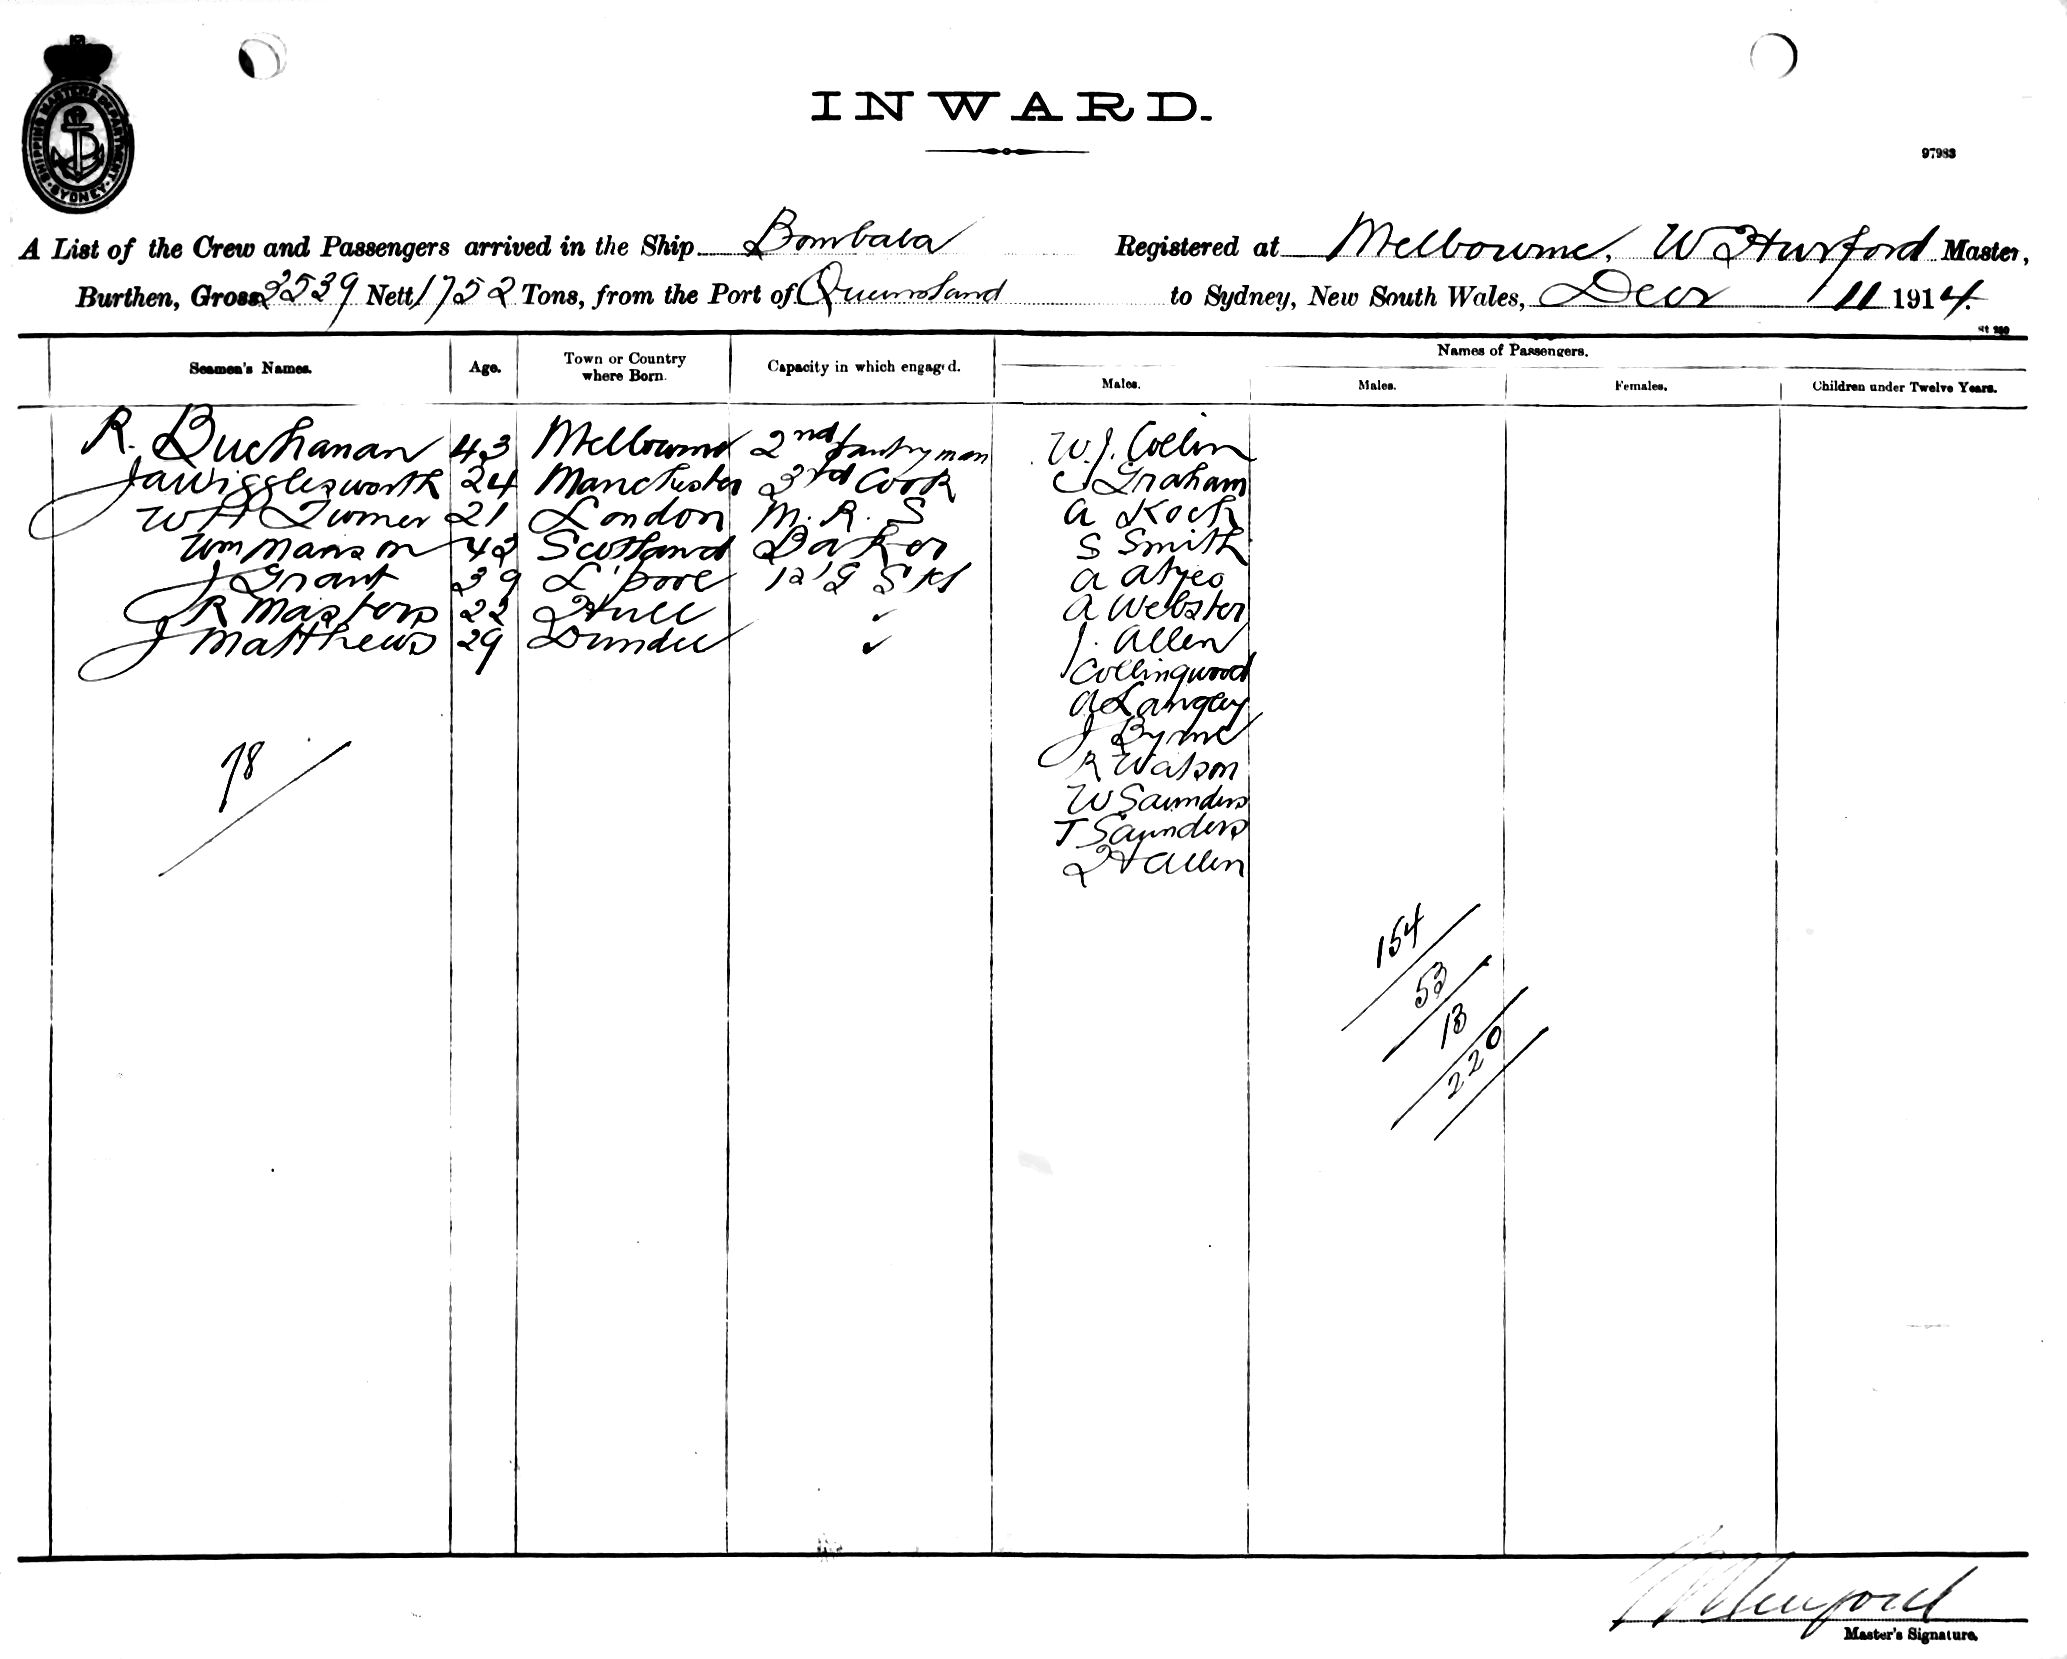 SHIPPING MASTERS DEPARTMENT
SYDNEY
INWARD.
97983
A List of the Crew and Passengers arrived in the Ship Bombala Registered at Melbourne, W Hurford Master,
Burthen, Gross 3539 Nett 1752 Tons, from the Port of Queensland to Sydney, New South Wales, Decr 11 1914.
Seamen's Names. Age. Town or Country where Born. Capacity in which engaged. Names of Passengers.
Males. Males. Females. Children under Twelve Years.
R. Buchanan 43 Melbourne 2nd Pantryman W. J. Collin
J A Wigglesworth 24 Manchester 3rd Cook Graham
W H Turner 21 London M. R. S A Koch
Wm Manson 42 Scotland Baker S Smith
J Grant 39 L'pool S A Atyeo
J R Masters 22 Hull ✓ A Webster
J Matthews 29 Dundee ✓ J. Allen
Collingwood
A Langley
J Byrne
R Watson
W Saunders
T Saunders
H Allen
78
154
53
13
220
Master's Signature.